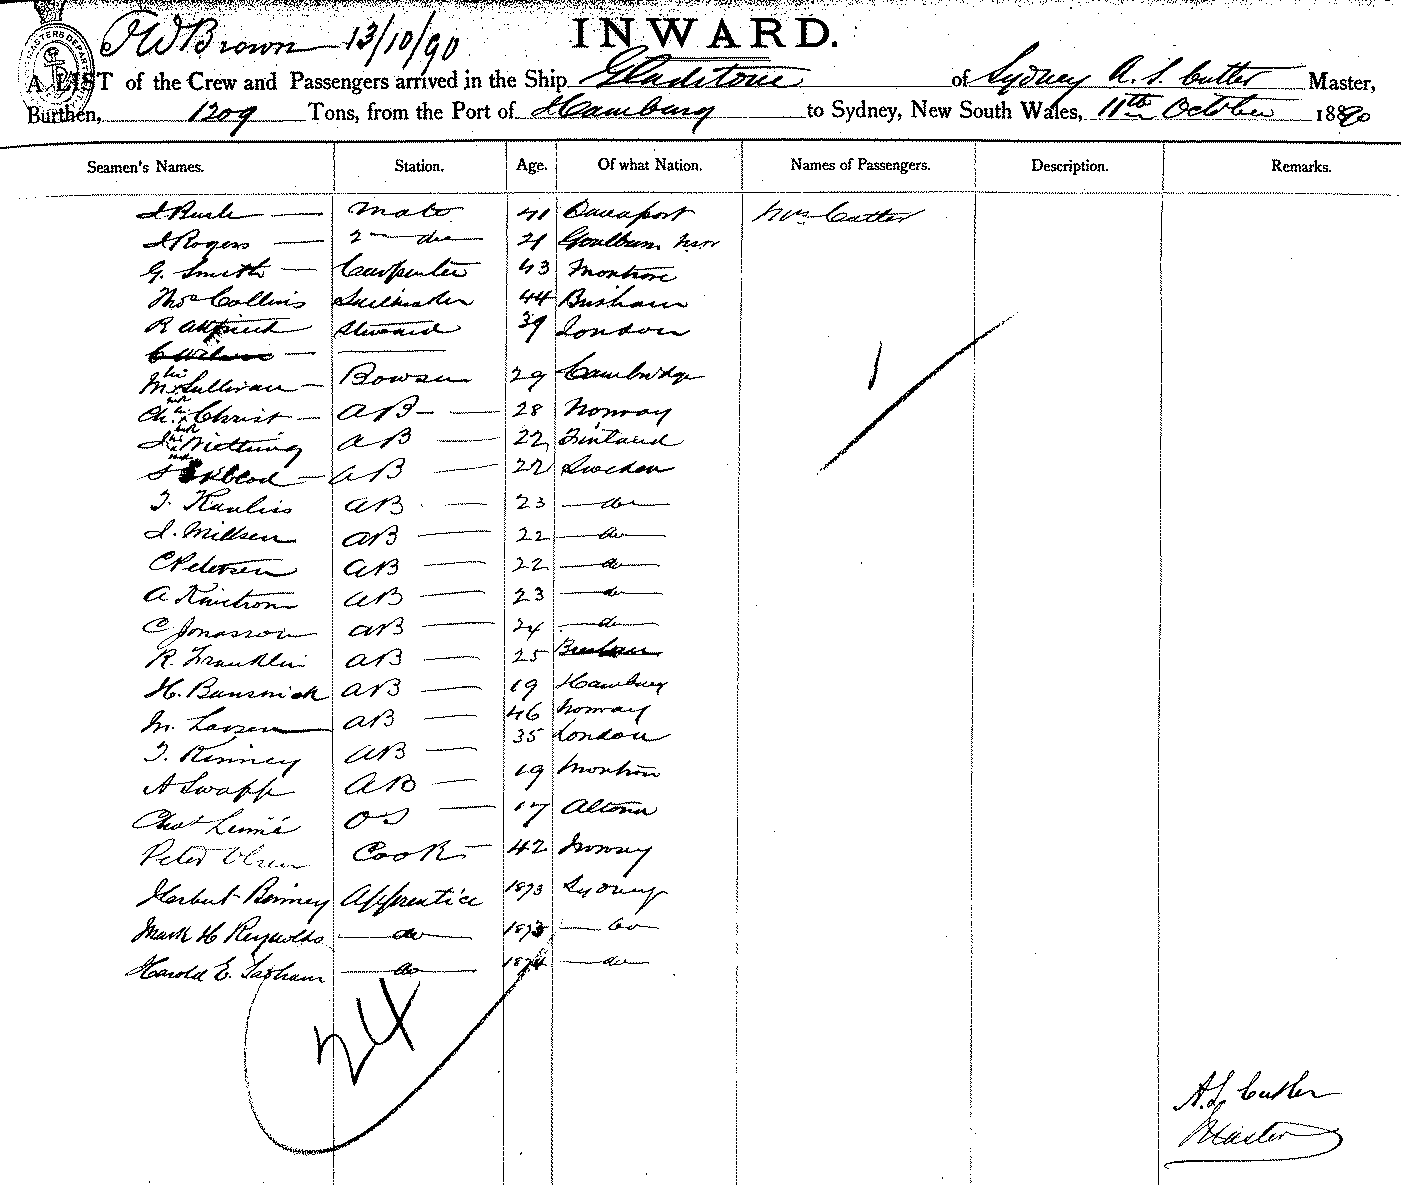 F W Brown 13/10/90
INWARD.
A LIST of the Crew and Passengers arrived in the Ship Gladstone of Sydney A. L. Cutler Master,
Burthen, 1209 Tons, from the Port of Hamburg to Sydney, New South Wales, 11th October 1890
Seamen's Names. Station. Age. Of what Nation. Names of Passengers. Description. Remarks.
Mate 41 Davenport Mrs Cutler
J Rogers 2nd do 21 Goulburn NSW
G. Smith Carpenter 43 Montrose
Thos Collins Sailmaker 44 Brixham
R Steward 39 London
M Sullivan Bowsun 29 Cambridge 1
Ch. Christ AB 28 Norway
AB 22 Finland
AB 22 Sweden
AB 23 do
AB 22 do
C Petersen AB 22 do
A AB 23 do
C Jonasson AB 24 do
R. Franklin AB 25
H. AB 19 Hamburg
M. Larsen AB 46 Norway
T. Kinney AB 35 London
A Swapp AB 19 Montrose
Chas OS 17 Altona
Peter Olsen Cook 42 Norway
Herbert Binney Apprentice 1873 Sydney
Mark H Reynolds do 1873 do
Harold E. do 1874 do
24
A. L. Cutler
Master